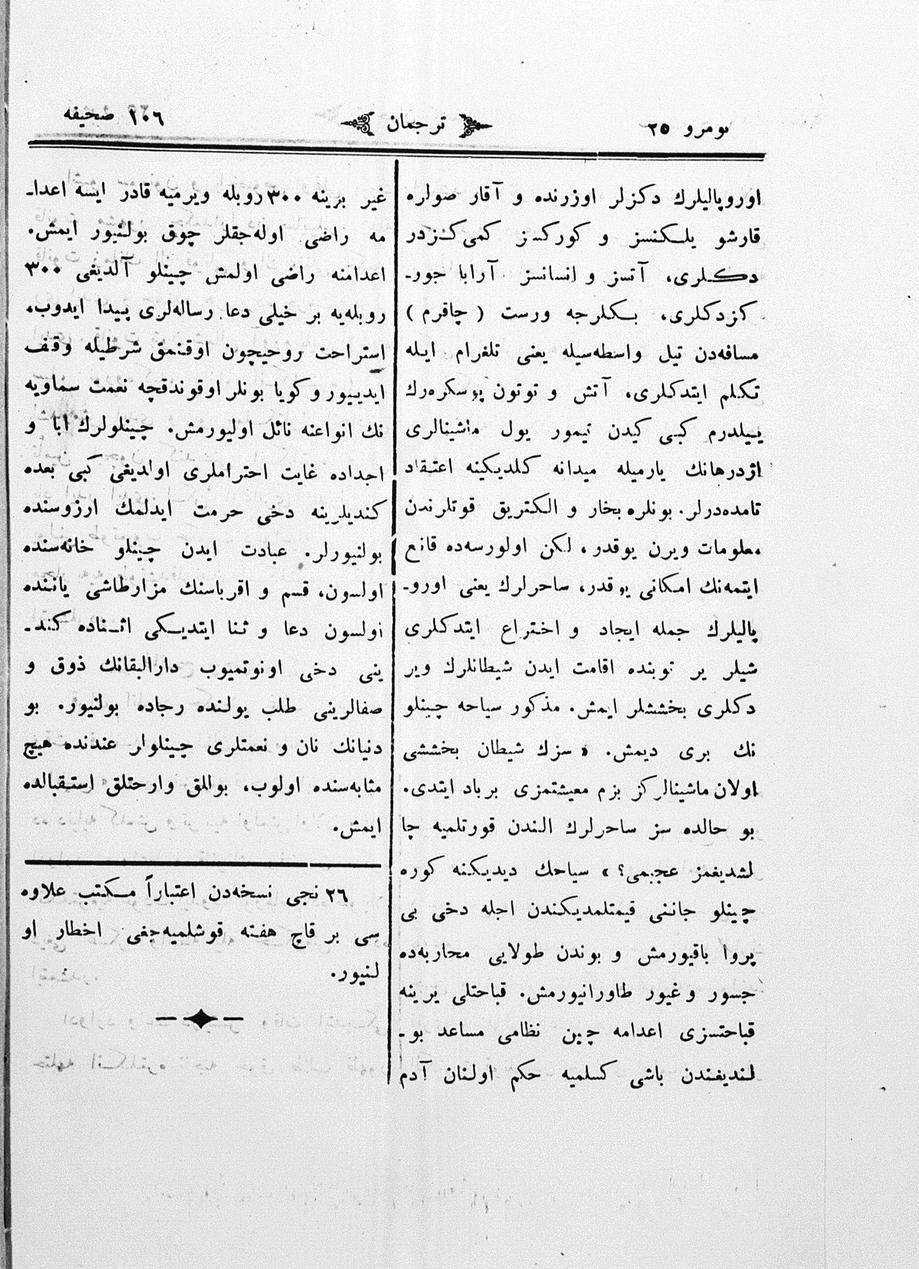 نومرو ٢٥
ترجمان
١٠٦ صحيفه
اوروپاليلرك دكزلر اوزرنده و آقار صولره
قارشو يلكنسز و كوركسز كمى كزدر
دكلرى، آتسز و انسانسز آرابا جور-
كزدكلرى، بكلرجه ورست ( چاقرم )
مسافه‌دن تيل واسطه‌سيله يعنى تلغرام ايله
تكلم ايتدكلرى، آتش و توتون پوسكره‌رك
ييلدرم كبى كيدن تيمور يول ماشينالرى
اژدرهانك يارميله ميدانه كلديكينه اعتقاد
تامده‌درلر. بونلره بخار و الكتريق قوتلرندن
معلومات ويرن يوقدر، لكن اولورسه‌ده قانع
ايتمه‌نك امكانى يوقدر، ساحرلرك يعنى اورو-
پاليلرك جمله ايجاد و اختراع ايتدكلرى
شيلر ير توبنده اقامت ايدن شيطانلرك وير
دكلرى بخششلر ايمش. مذكور سياحه چينلو
نك برى ديمش. « سزك شيطان بخششى
اولان ماشينالركز بزم معيشتمزى برباد ايتدى.
بو حالده سز ساحرلرك الندن قورتلميه چا
لشديغمز عجبمى؟ » سياحك ديديكينه كوره
چينلو جاننى قيمتلمديكندن اجله دخى بى
پروا باقيورمش و بوندن طولايى محاربه‌ده
جسور و غيور طاورانيورمش. قباحتلى يرينه
قباحتسزى اعدامه چين نظامى مساعد بو-
لنديغندن باشى كسلميه حكم اولنان آدم
غير برينه ٣٠٠ روبله ويرميه قادر ايسه اعدا-
مه راضى اوله‌جقلر چوق بولنيور ايمش.
اعدامنه راضى اولمش چينلو آلديغى ٣٠٠
روبله‌يه بر خيلى دعا رساله‌لرى پيدا ايدوب،
استراحت روحيچون اوقنمق شرطيله وقف
ايدييور و كويا بونلر اوقوندقچه نعمت سماويه
نك انواعنه نائل اوليورمش. چينلولرك ابا و
اجداده غايت احتراملرى اولديغى كبى بعده
كنديلرينه دخى حرمت ايدلمك ارزوسنده
بولنيورلر. عبادت ايدن چينلو خانه‌سنده
اولسون، قسم و اقرباسنك مزارطاشى يانند‌ه
اولسون دعا و ثنا ايتديكى اثناده كند-
ينى دخى اونوتميوب دارالبقانك ذوق و
صفالرينى طلب يولنده رجاده بولنيور. بو
دنيانك نان و نعمتلرى چينلولر عندنده هيچ
مثابه‌سنده اولوب، بوللق وارحتلق استقبالده
ايمش.
٢٦ نجى نسخه‌دن اعتباراً مكتب علاوه
سى بر قاچ هفته قوشلميه‌جغى اخطار او
لنيور.